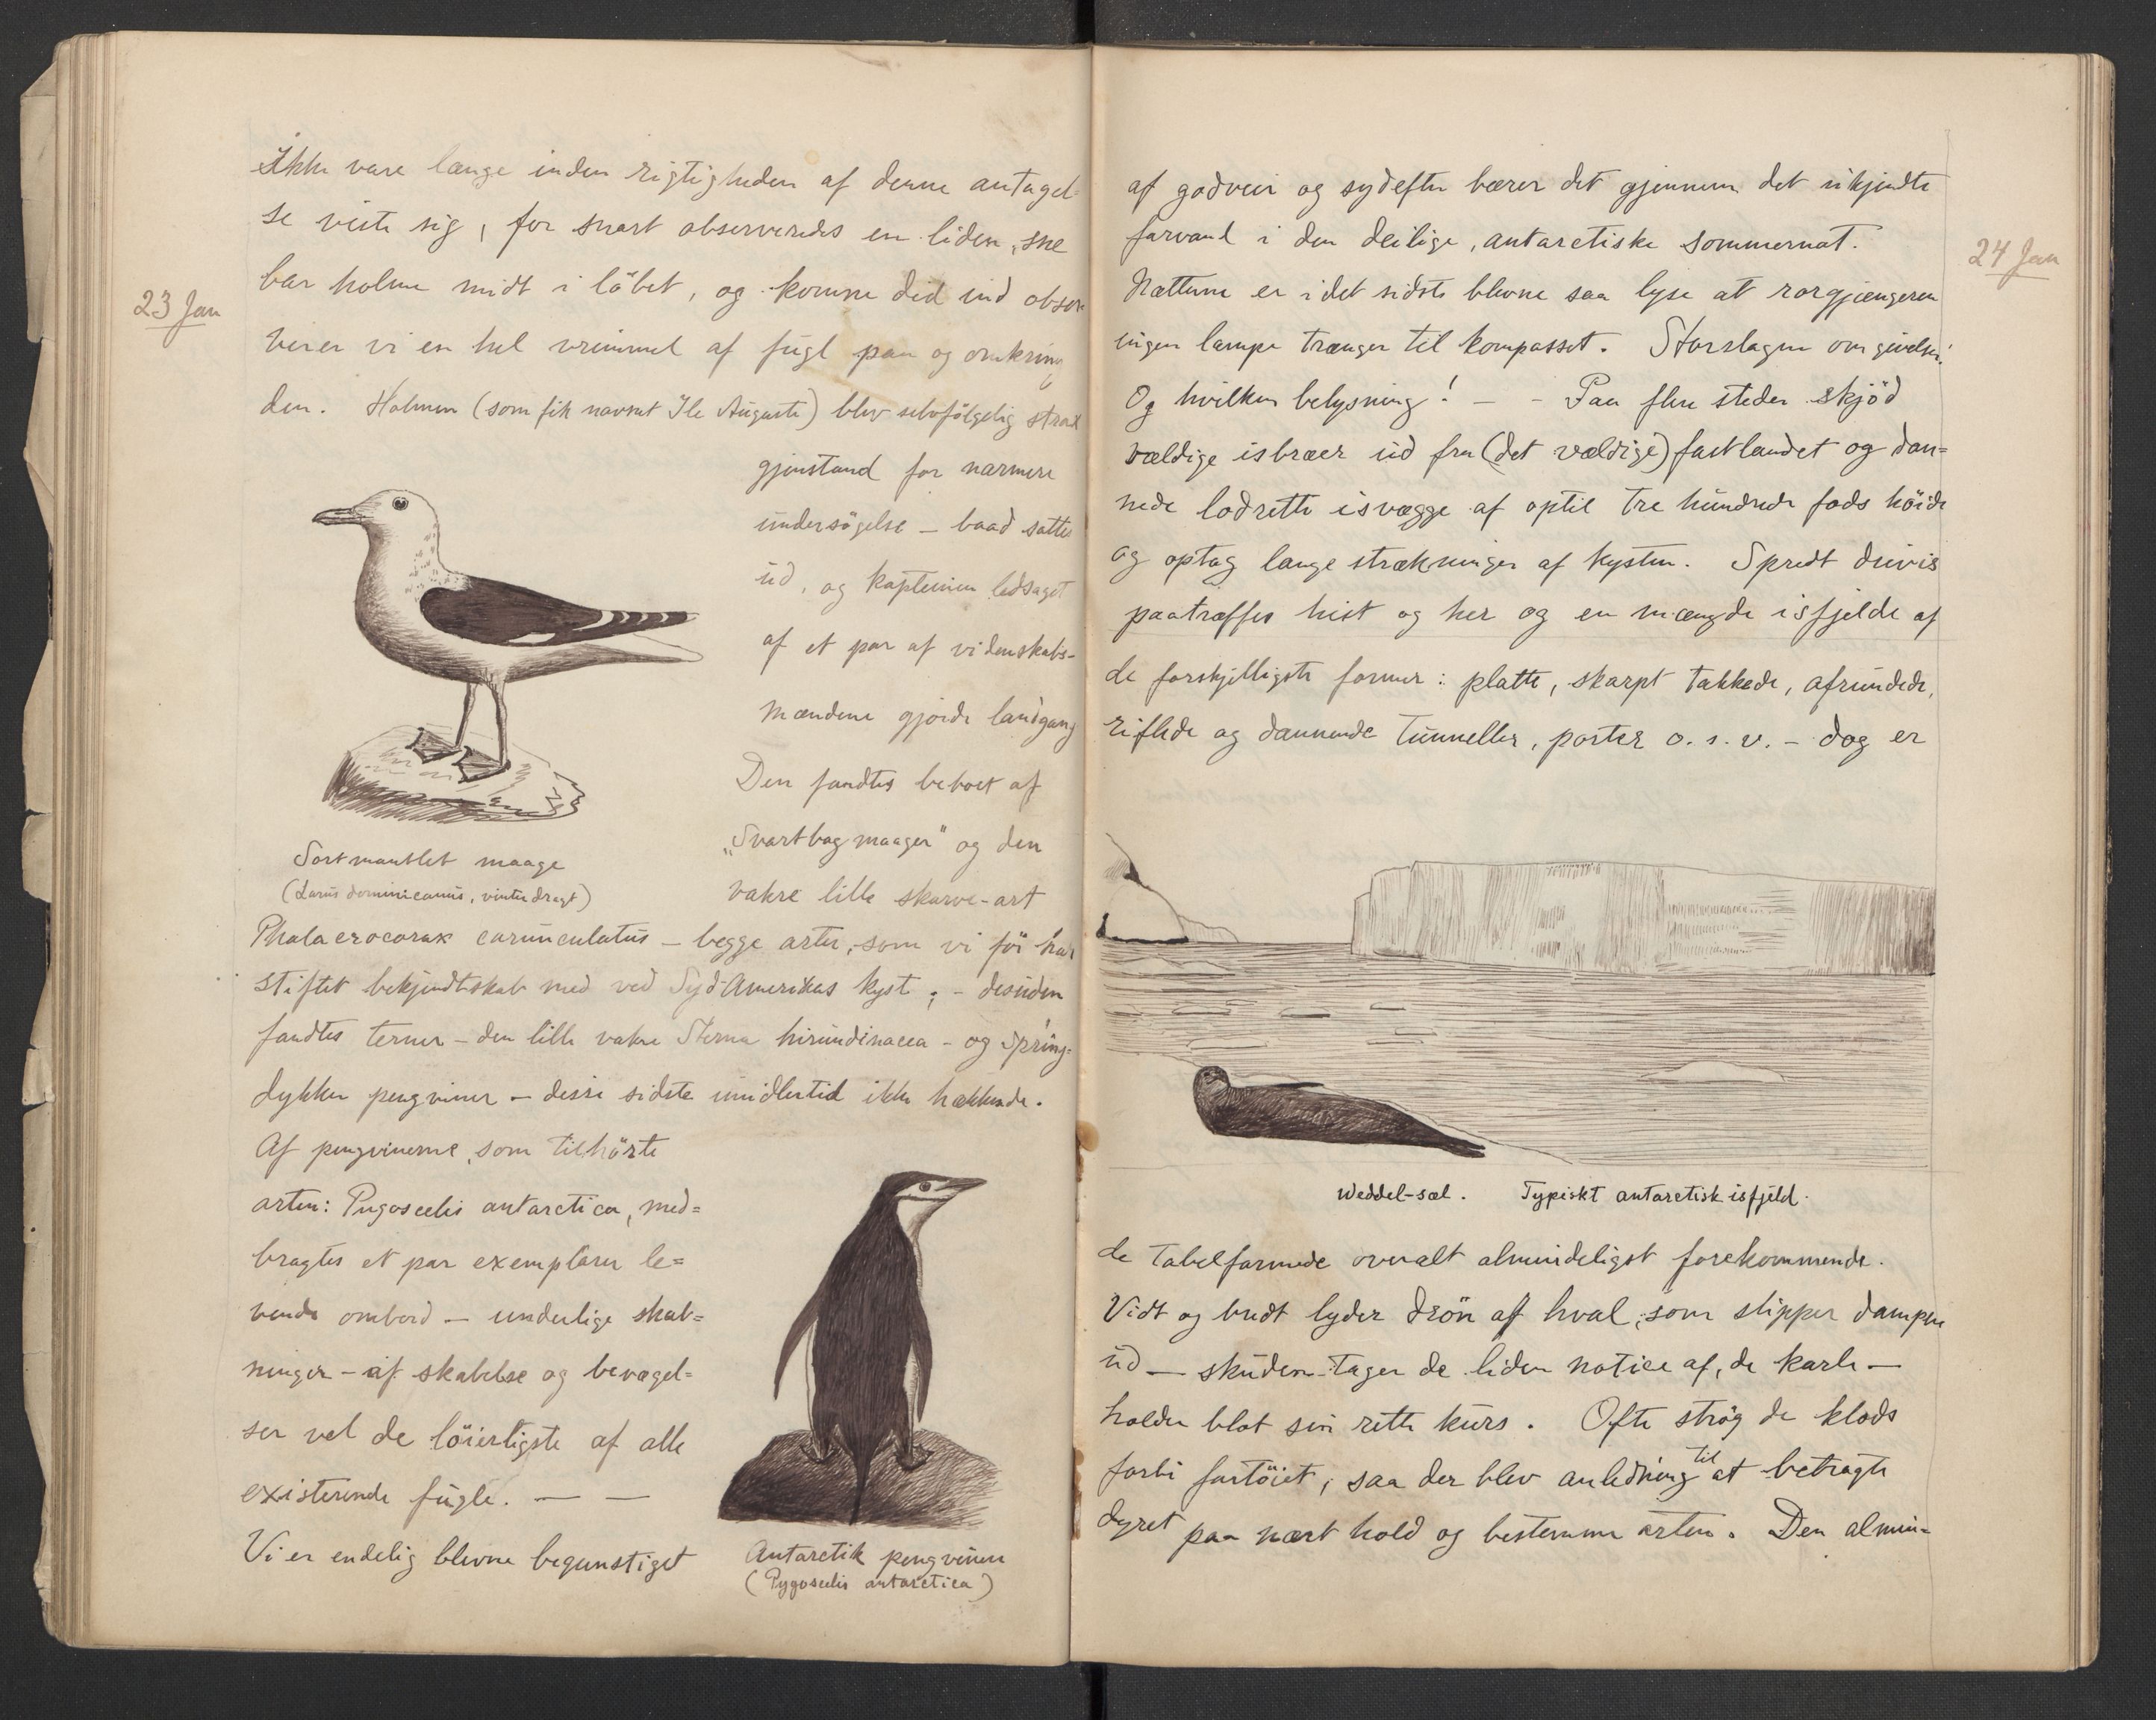 23 Jan
Ikke vare længe inden rigtigheden af denne antagel-
se viste sig, for snart observeredes en liden, sne
bar holme midt i löbet, og komne did ind obser
verer vi en hel vrimmel af fugl paa og omkring
den. Holmen (som fik navnet Ile Auguste) blev selvfölgelig strax
gjenstand for nærmere
undersögelse – baad sattes
ud, og kapteinen ledsaget
af et par af videnskabs-
mændene gjorde landgang
Den fandtes beboet af
„Svartbag maager" og den
vakre lille skarve-art
Sortmantlet maage
(Larus dominicanus, vinterdragt)
Phalacrocorax carunculatus – begge arter, som vi för har
stiftet bekjendtskab med ved Syd-Amerikas kyst; – desuden
fandtes terner – den lille vakre Sterna hirundinacea – og Spring-
dykker pengviner – disse sidste imidlertid ikke hækkende.
Af pengvinerne, som tilhörte
arten: Pygoscelis antarctica, med=
bragtes et par exemplarer le=
vende ombord – underlige skab=
ninger – af skabelse og bevægel=
ser vel de löierligste af alle
existerende fugle. — —
Vi er endelig blevne begunstiget
Antarctik pengvinen
(Pygoscelis antarctica)
24 Jan
af godveir og sydefter bærer det gjennem det ukjendte
farvand i den deilige, antarctiske sommernat.
Nætterne er i det sidste blevne saa lyse at rorgjængeren
ingen lampe trænger til kompasset. Storslagne omgivelser!
Og hvilken belysning! – – Paa flere steder skjöd
vældige isbræer ud fra (det vældige) fastlandet og dan=
nede lodrette isvægge af optil tre hundrede fods höide
og optog lange strækninger af kysten. Spredt drivis
paatræffes hist og her og en mængde isfjelde af
de forskjelligste former: platte, skarpt takkede, afrundede,
riflede og dannende tunneller, porter o. s. v. – dog er
Weddel-sæl. Typiskt antarctisk isfjeld.
de tabelformede overalt almindeligst forekommende.
Vidt og bredt lyder drön af hval, som slipper dampen
ud — skuden tager de liden notice af, de karle —
holder blot sin rette kurs. Ofte strög de klods
forbi fartöiet, saa der blev anledning til at betragte
dyret paa nært hold og bestemme arten. Den almin=